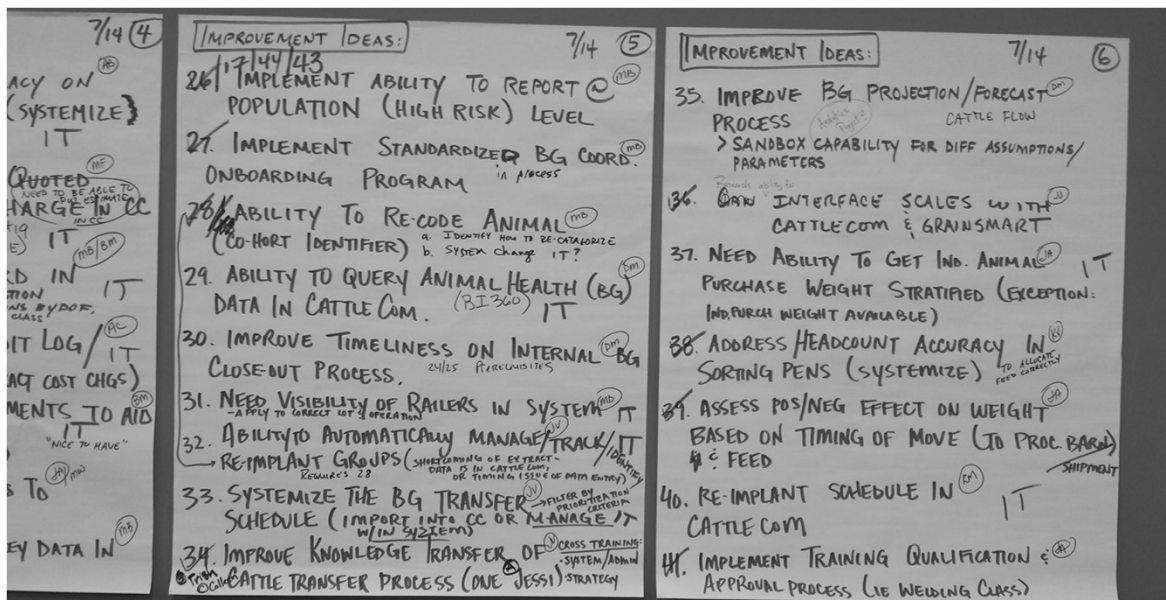 7/14 4
AB
ACY ON
(SYSTEMIZE)
IT
MF
QUOTED
NEED TO BE ABLE TO
PUT ESTIMATE
HARGE IN CC
IN CC
#19
E) IT
MB/BM
RD IN IT
TION
NS BY DOF,
CLASS
AC
DIT LOG/ IT
ACT COST CHGS)
BM
MENTS TO AID
IT
"NICE TO HAVE"
JA/MW
S TO
MB
EY DATA IN
IMPROVEMENT IDEAS: 7/14 5
26/17/44/43 IMPLEMENT ABILITY TO REPORT @ MB
POPULATION (HIGH RISK) LEVEL
27. IMPLEMENT STANDARDIZED BG COORD. MB
ONBOARDING PROGRAM in process
28. ABILITY TO RE-CODE ANIMAL MB
(CO-HORT IDENTIFIER) a. IDENTIFY HOW TO RE-CATAGORIZE
b. SYSTEM change IT?
29. ABILITY TO QUERY ANIMAL HEALTH (BG) DM
DATA IN CATTLECOM. (BI360) IT
30. IMPROVE TIMELINESS ON INTERNAL BG DM
CLOSEOUT PROCESS. 24/25 PREREQUISITES
31. NEED VISIBILITY OF RAILERS IN SYSTEM MB IT
-APPLY TO CORRECT LOT & OPERATION
32. ABILITY TO AUTOMATICALLY MANAGE/TRACK/IDENTIFY JV IT
RE-IMPLANT GROUPS (SHORTCOMING OF EXTRACT-
REQUIRES 28 DATA IS IN CATTLECOM,
OR TIMING ISSUE OF DATA ENTRY)
33. SYSTEMIZE THE BG TRANSFER JV → FILTER BY
PRIORITIZATION
CRITERIA
SCHEDULE (IMPORT INTO CC OR MANAGE IT
W/IN SYSTEM)
34. IMPROVE KNOWLEDGE TRANSFER OF JV CROSS TRAINING:
-SYSTEM/ADMIN
CATTLE TRANSFER PROCESS (ONE JESSI) -STRATEGY
IMPROVEMENT IDEAS: 7/14 6
35. IMPROVE BG PROJECTION/FORECAST DM
PROCESS CATTLE FLOW
> SANDBOX CAPABILITY FOR DIFF ASSUMPTIONS/
PARAMETERS
Research ability to
36. CAN INTERFACE SCALES WITH JJ
CATTLECOM & GRAINSMART
37. NEED ABILITY TO GET IND. ANIMAL JA IT
PURCHASE WEIGHT STRATIFIED (EXCEPTION:
IND. PURCH WEIGHT AVAILABLE)
38. ADDRESS/HEADCOUNT ACCURACY IN
SORTING PENS (SYSTEMIZE) TO ALLOCATE
FEED CORRECTLY
39. ASSESS POS/NEG EFFECT ON WEIGHT JA
BASED ON TIMING OF MOVE (TO PROC. BARN)
& FEED SHIPMENT
40. RE-IMPLANT SCHEDULE IN RM IT
CATTLECOM
41. IMPLEMENT TRAINING QUALIFICATION & JA
APPROVAL PROCESS (IE WELDING CLASS)